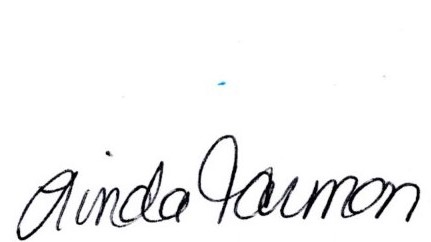 Linda Jarmon